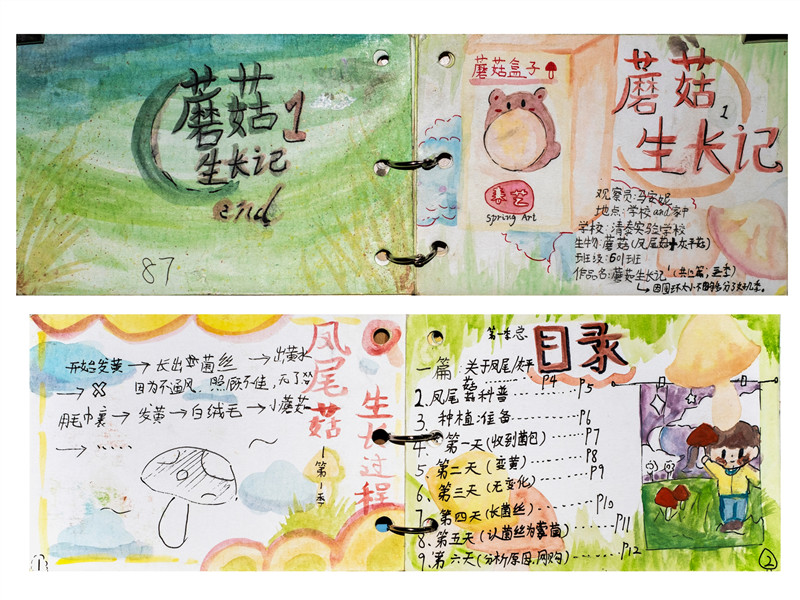 蘑菇
生长记
1
end
87
蘑菇盒子
春艺
spring Art
蘑菇
1
生长记
观察员:马安妮
地点:学校and家中
学校:清泰实验学校
生物:蘑菇(凤尾菇+太平菇)
班级:601班
作品名:蘑菇生长记1
开始发黄→长出菌丝→出黄水
→ X 因为不通风,照顾不佳,
用毛巾裹→发黄→白绒毛→小蘑菇
→……
凤尾菇
生长过程
第1季
1
目录
一篇:关于凤尾/太平
菇………P4
2.凤尾菇科普………P5
3.种植准备………P6
4.第一天(收到菌包)……P7
5.第二天(变黄)………P8
6.第三天(无变化)………P9
7.第四天(长菌丝)………P10
8.第五天(认菌丝为霉菌)………P11
9.第六天(分析原因.网购)………P12
2